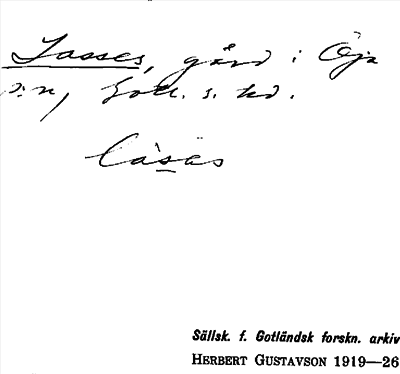 Lasses, gård i Öja
s:n, Gotl. s. hd.
làsas
Sällsk. f. Gotländsk forskn. arkiv
HERBERT GUSTAVSON 1919—26